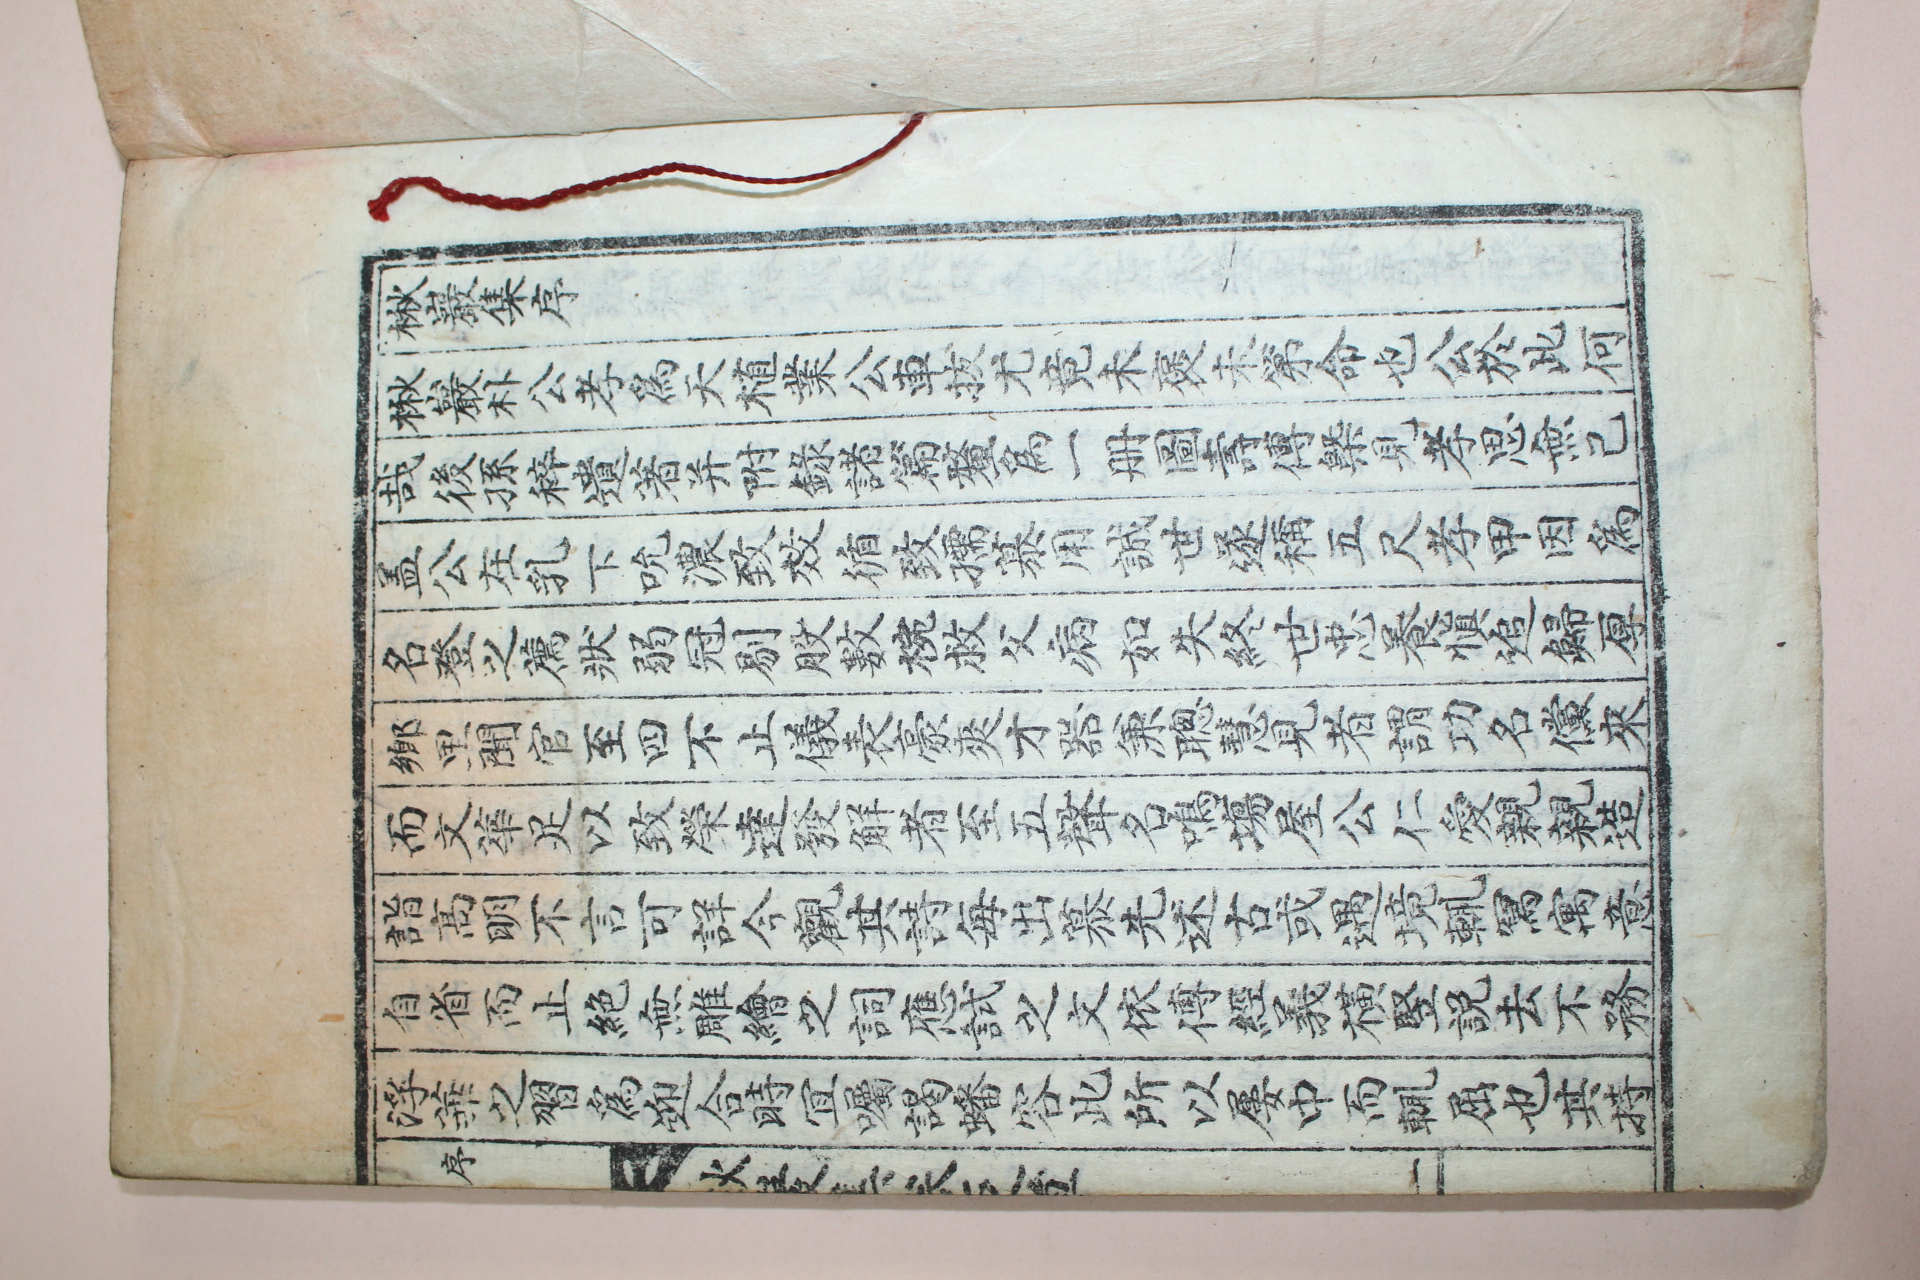 楸巖集序
楸巖朴公孝爲天植業公車拔尤竟未褒未第命也公於此何
哉後孫稡遺著并附錄諸篇釐爲一冊圖壽傳槩見孝思無已
盖公在乳下吮濃致效循致孺慕用誠世遂稱五尺孝甲因爲
名登之薦狀弱冠剔股數椀救父病如失終世忠養愼追歸厚
鄉里聞官至四不止儀表豪爽才器兼聰慧見者謂功名儻來
而文華足以致榮達發解者至五聲名鳴塲屋公仁愛親親造
詣高明不言可詳今觀其詩每出慕先述古或遇境輒冩寓意
自省而止絶無雕繪之詞應試之文依傳經義橫竪説去不務
浮華之習爲迎合時宜囑謁蟠容此所以屢中而輒屈也其持
序